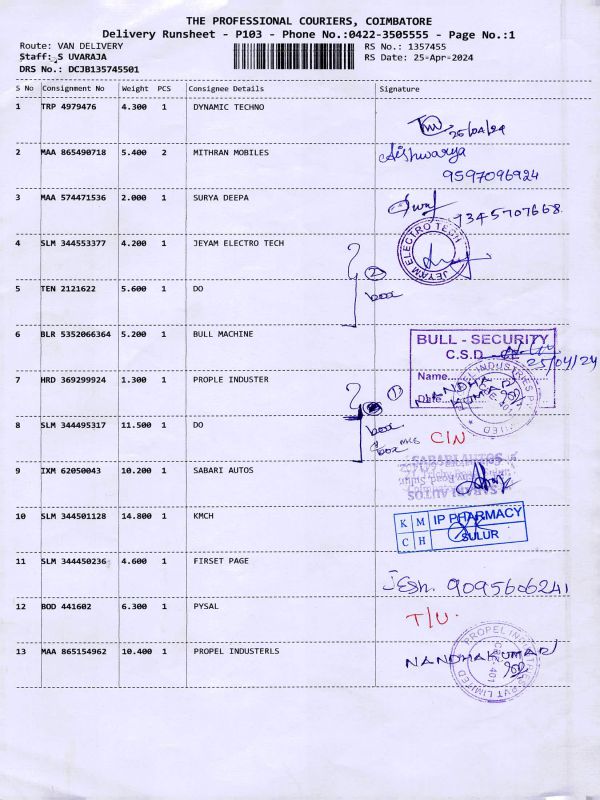 THE PROFESSIONAL COURIERS, COIMBATORE
Delivery Runsheet - P103 - Phone No.:0422-3505555 - Page No.:1
Route: VAN DELIVERY RS No.: 1357455
Staff: S UVARAJA RS Date: 25-Apr-2024
DRS No.: DCJB135745501
S No Consignment No Weight PCS Consignee Details Signature
1 TRP 4979476 4.300 1 DYNAMIC TECHNO
25/04/24
2 MAA 865490718 5.400 2 MITHRAN MOBILES Aishwarya
9597096924
3 MAA 574471536 2.000 1 SURYA DEEPA
9345707668
4 SLM 344553377 4.200 1 JEYAM ELECTRO TECH
JEYAM ELECTRO TECH
2
5 TEN 2121622 5.600 1 DO
box
6 BLR 5352066364 5.200 1 BULL MACHINE
BULL - SECURITY
C.S.D
25/04/24
7 HRD 369299924 1.300 1 PROPLE INDUSTER
Name
NANDHA KUMAR
Date
1
8 SLM 344495317 11.500 1 DO
box
box C/N
9 IXM 62050043 10.200 1 SABARI AUTOS
SABARI AUTOS
10 SLM 344501128 14.800 1 KMCH
K M IP PHARMACY
C H SULUR
11 SLM 344450236 4.600 1 FIRSET PAGE
Jesh. 9095606241
12 BOD 441602 6.300 1 PYSAL
T/U.
13 MAA 865154962 10.400 1 PROPEL INDUSTERLS
NANDHAKUMAR
PROPEL INDUSTRIES PVT LIMITED